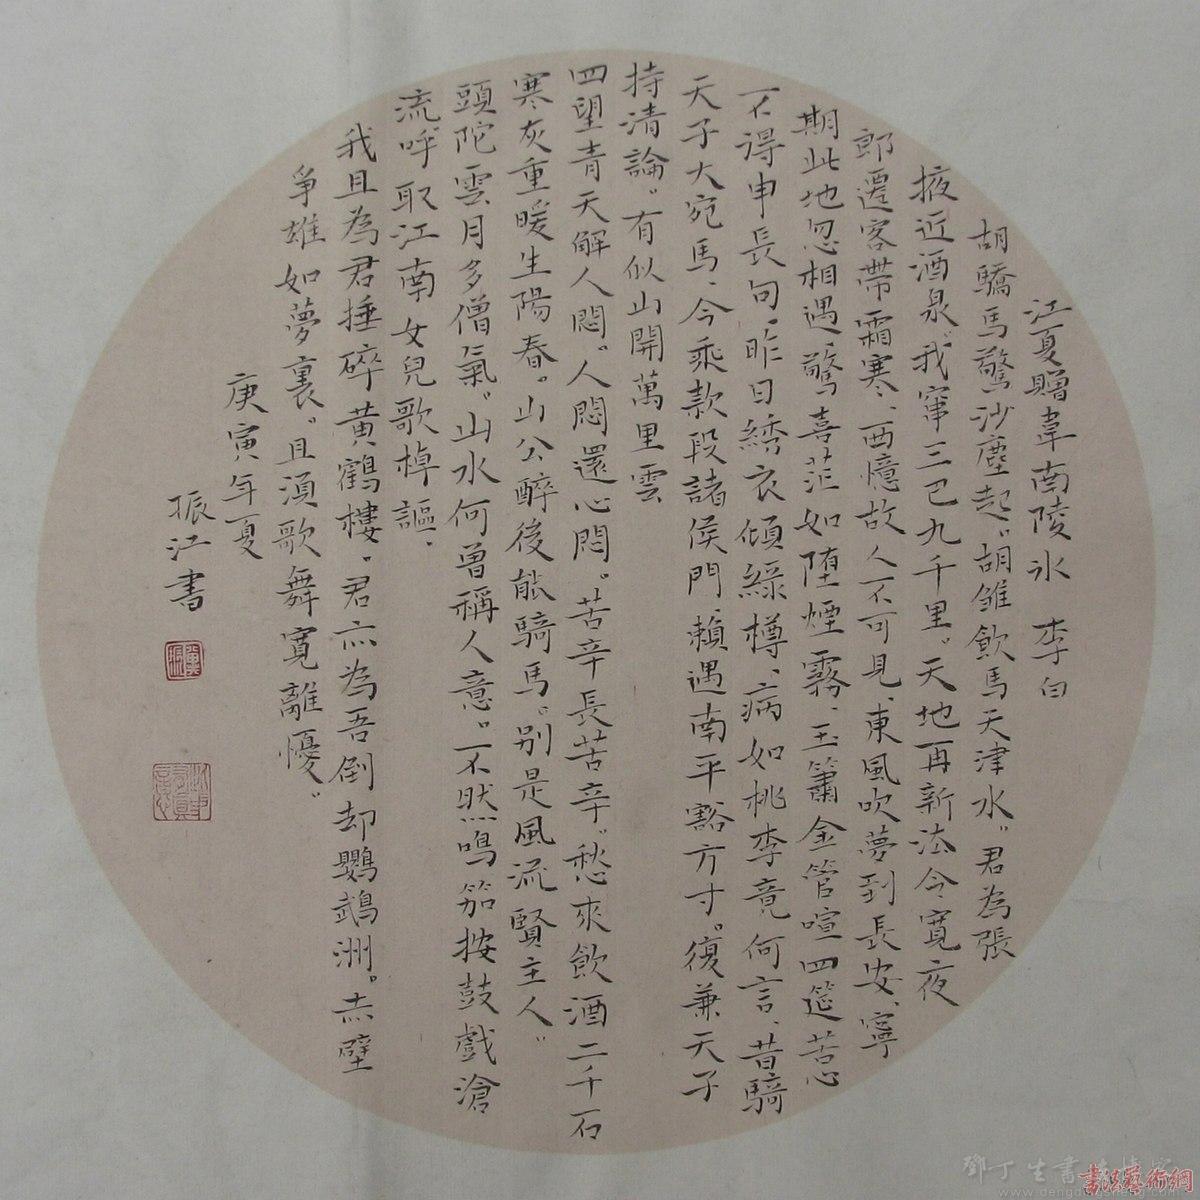 江夏贈韋南陵氷 李白
胡驕馬驚沙塵起。胡雛飲馬天津水。君為張
掖近酒泉。我竄三巴九千里。天地再新法令寬夜
郎遷客帶霜寒、西憶故人不可見、東風吹夢到長安、寧
期此地忽相遇、驚喜茫如墮煙霧、玉簫金管喧四筵苦心
不得申長句、昨日綉衣傾綠樽、病如桃李竟何言、昔騎
天子大宛馬、今乘款段諸侯門、賴遇南平豁方寸。復兼天子
持清論。有似山開萬里雲
四望青天解人悶。人悶還心悶。苦辛長苦辛。愁來飲酒二千石
寒灰重暖生陽春。山公醉後能騎馬。别是風流賢主人。
頭陀雲月多僧氣。山水何曾稱人意。不然鳴笳按鼓戲滄
流呼取江南女兒歌棹謳.
我且為君捶碎黃鶴樓。君亦為吾倒却鸚鵡洲。赤壁
爭雄如夢裏。且須歌舞寬離憂。
庚寅年夏
振江書
書法藝術網